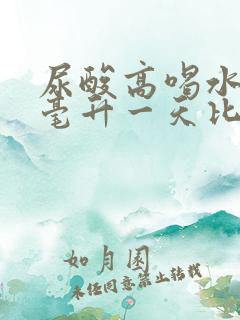 尿酸高喝水
毫升一天比
如月园
未经同意禁止转载